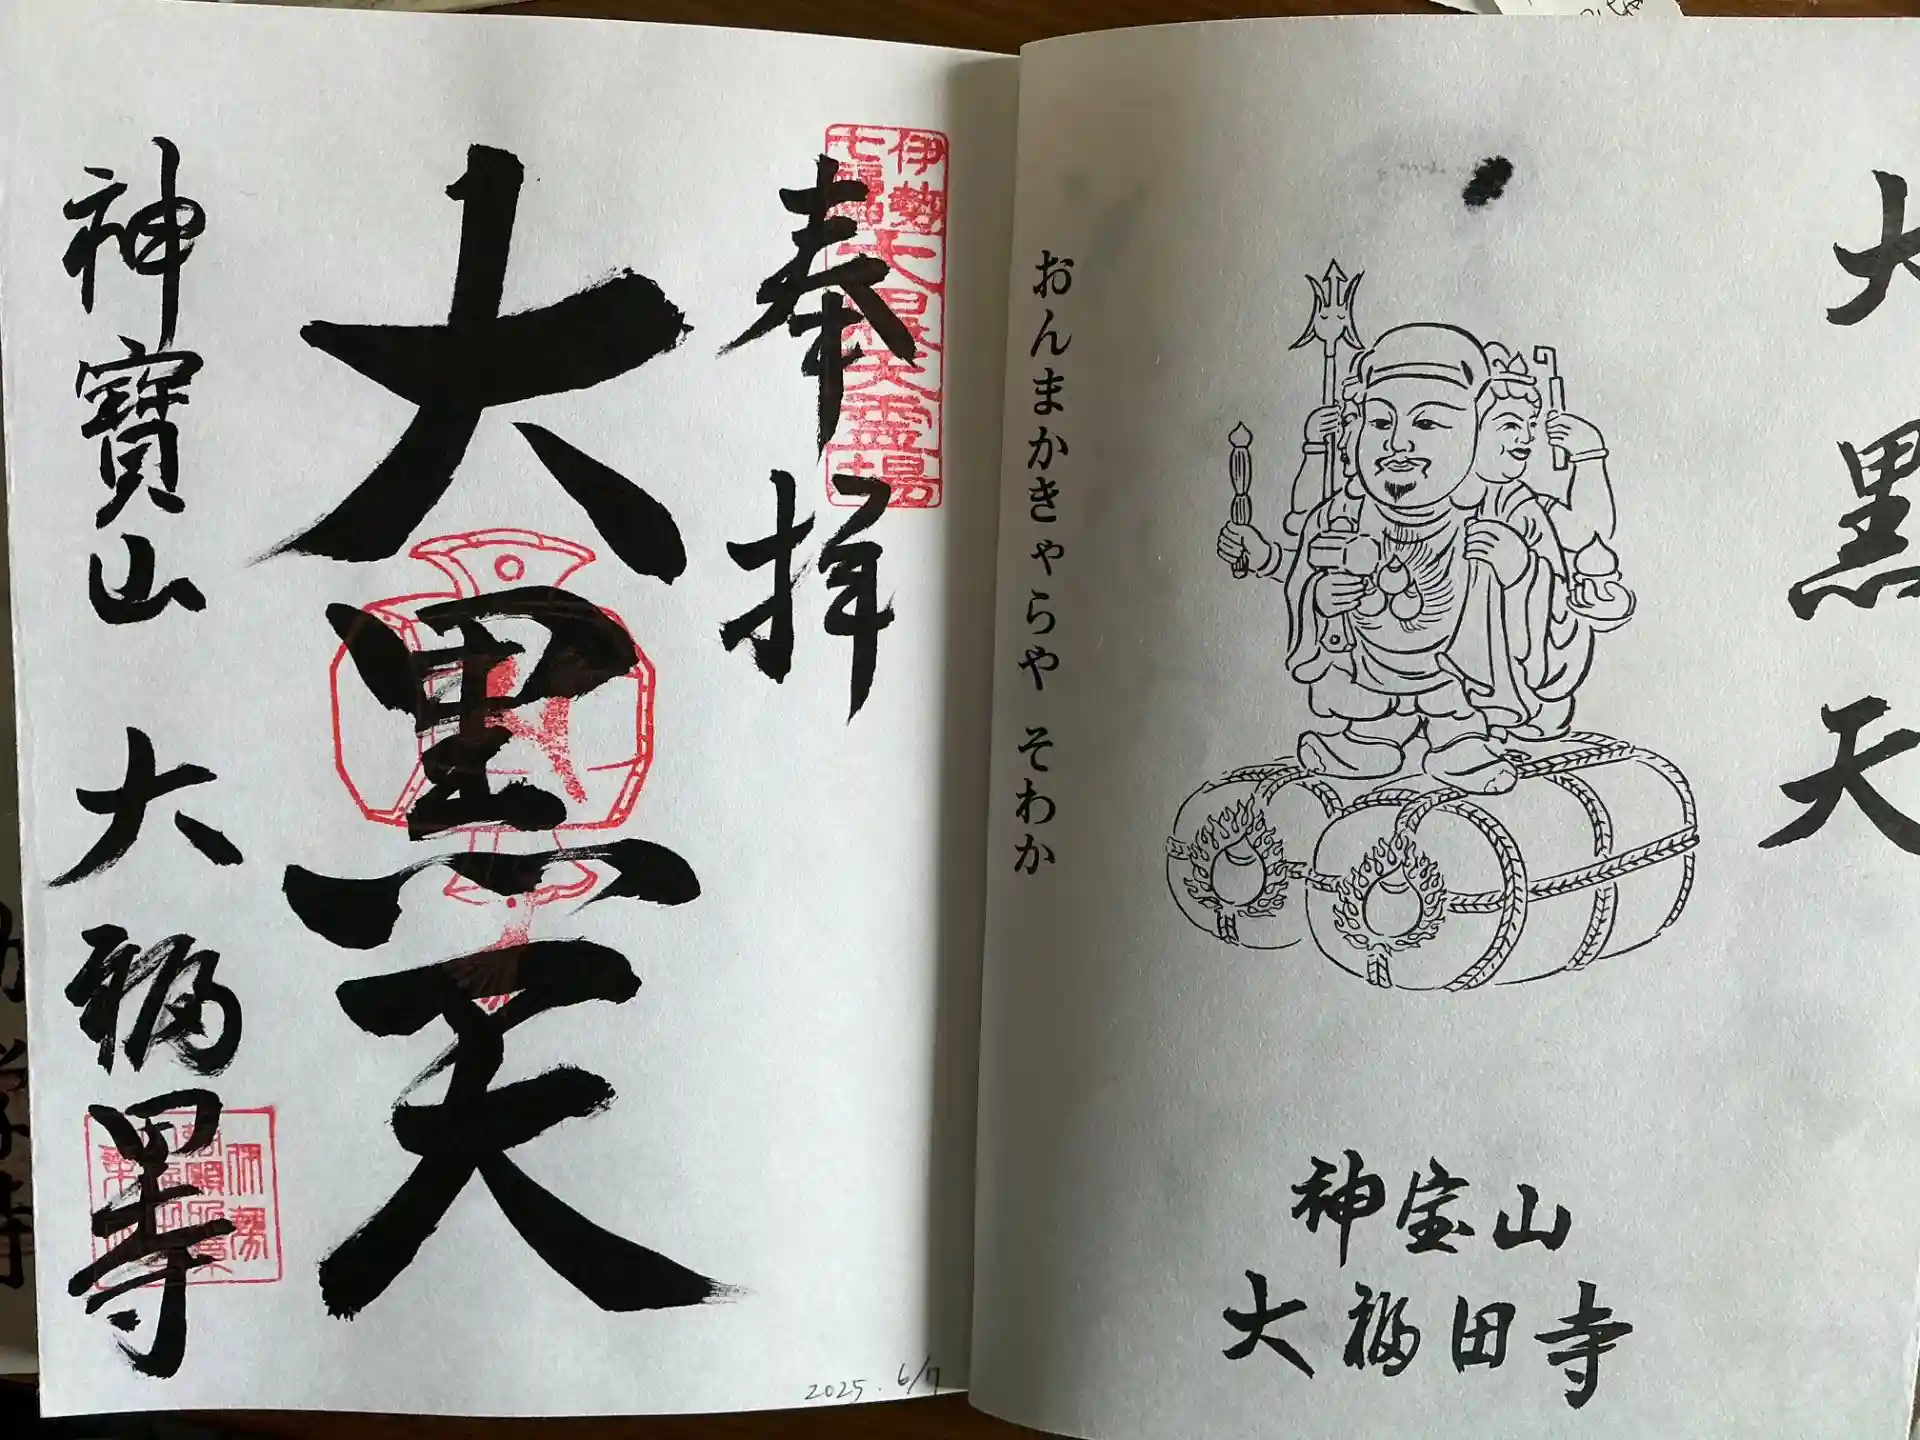 大黒天
おんまかきゃらや そわか
神宝山
大福田寺
伊勢
七福
大黒天霊場
奉拝
大黒天
神寶山 大福田寺
2025. 6/7